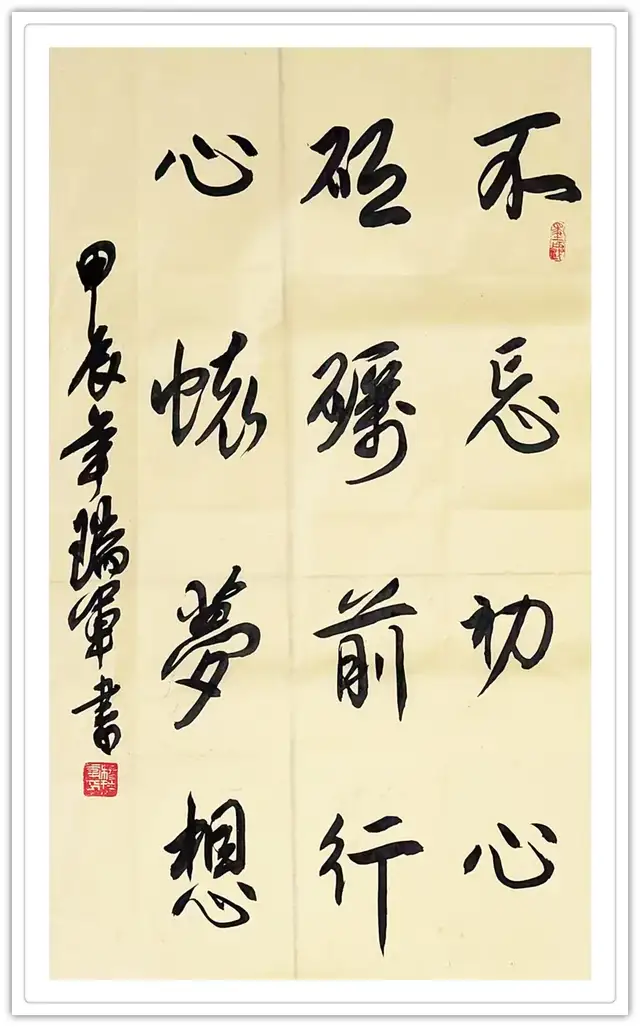 不忘初心
砥礪前行
心懷夢想
甲辰年瑞軍書